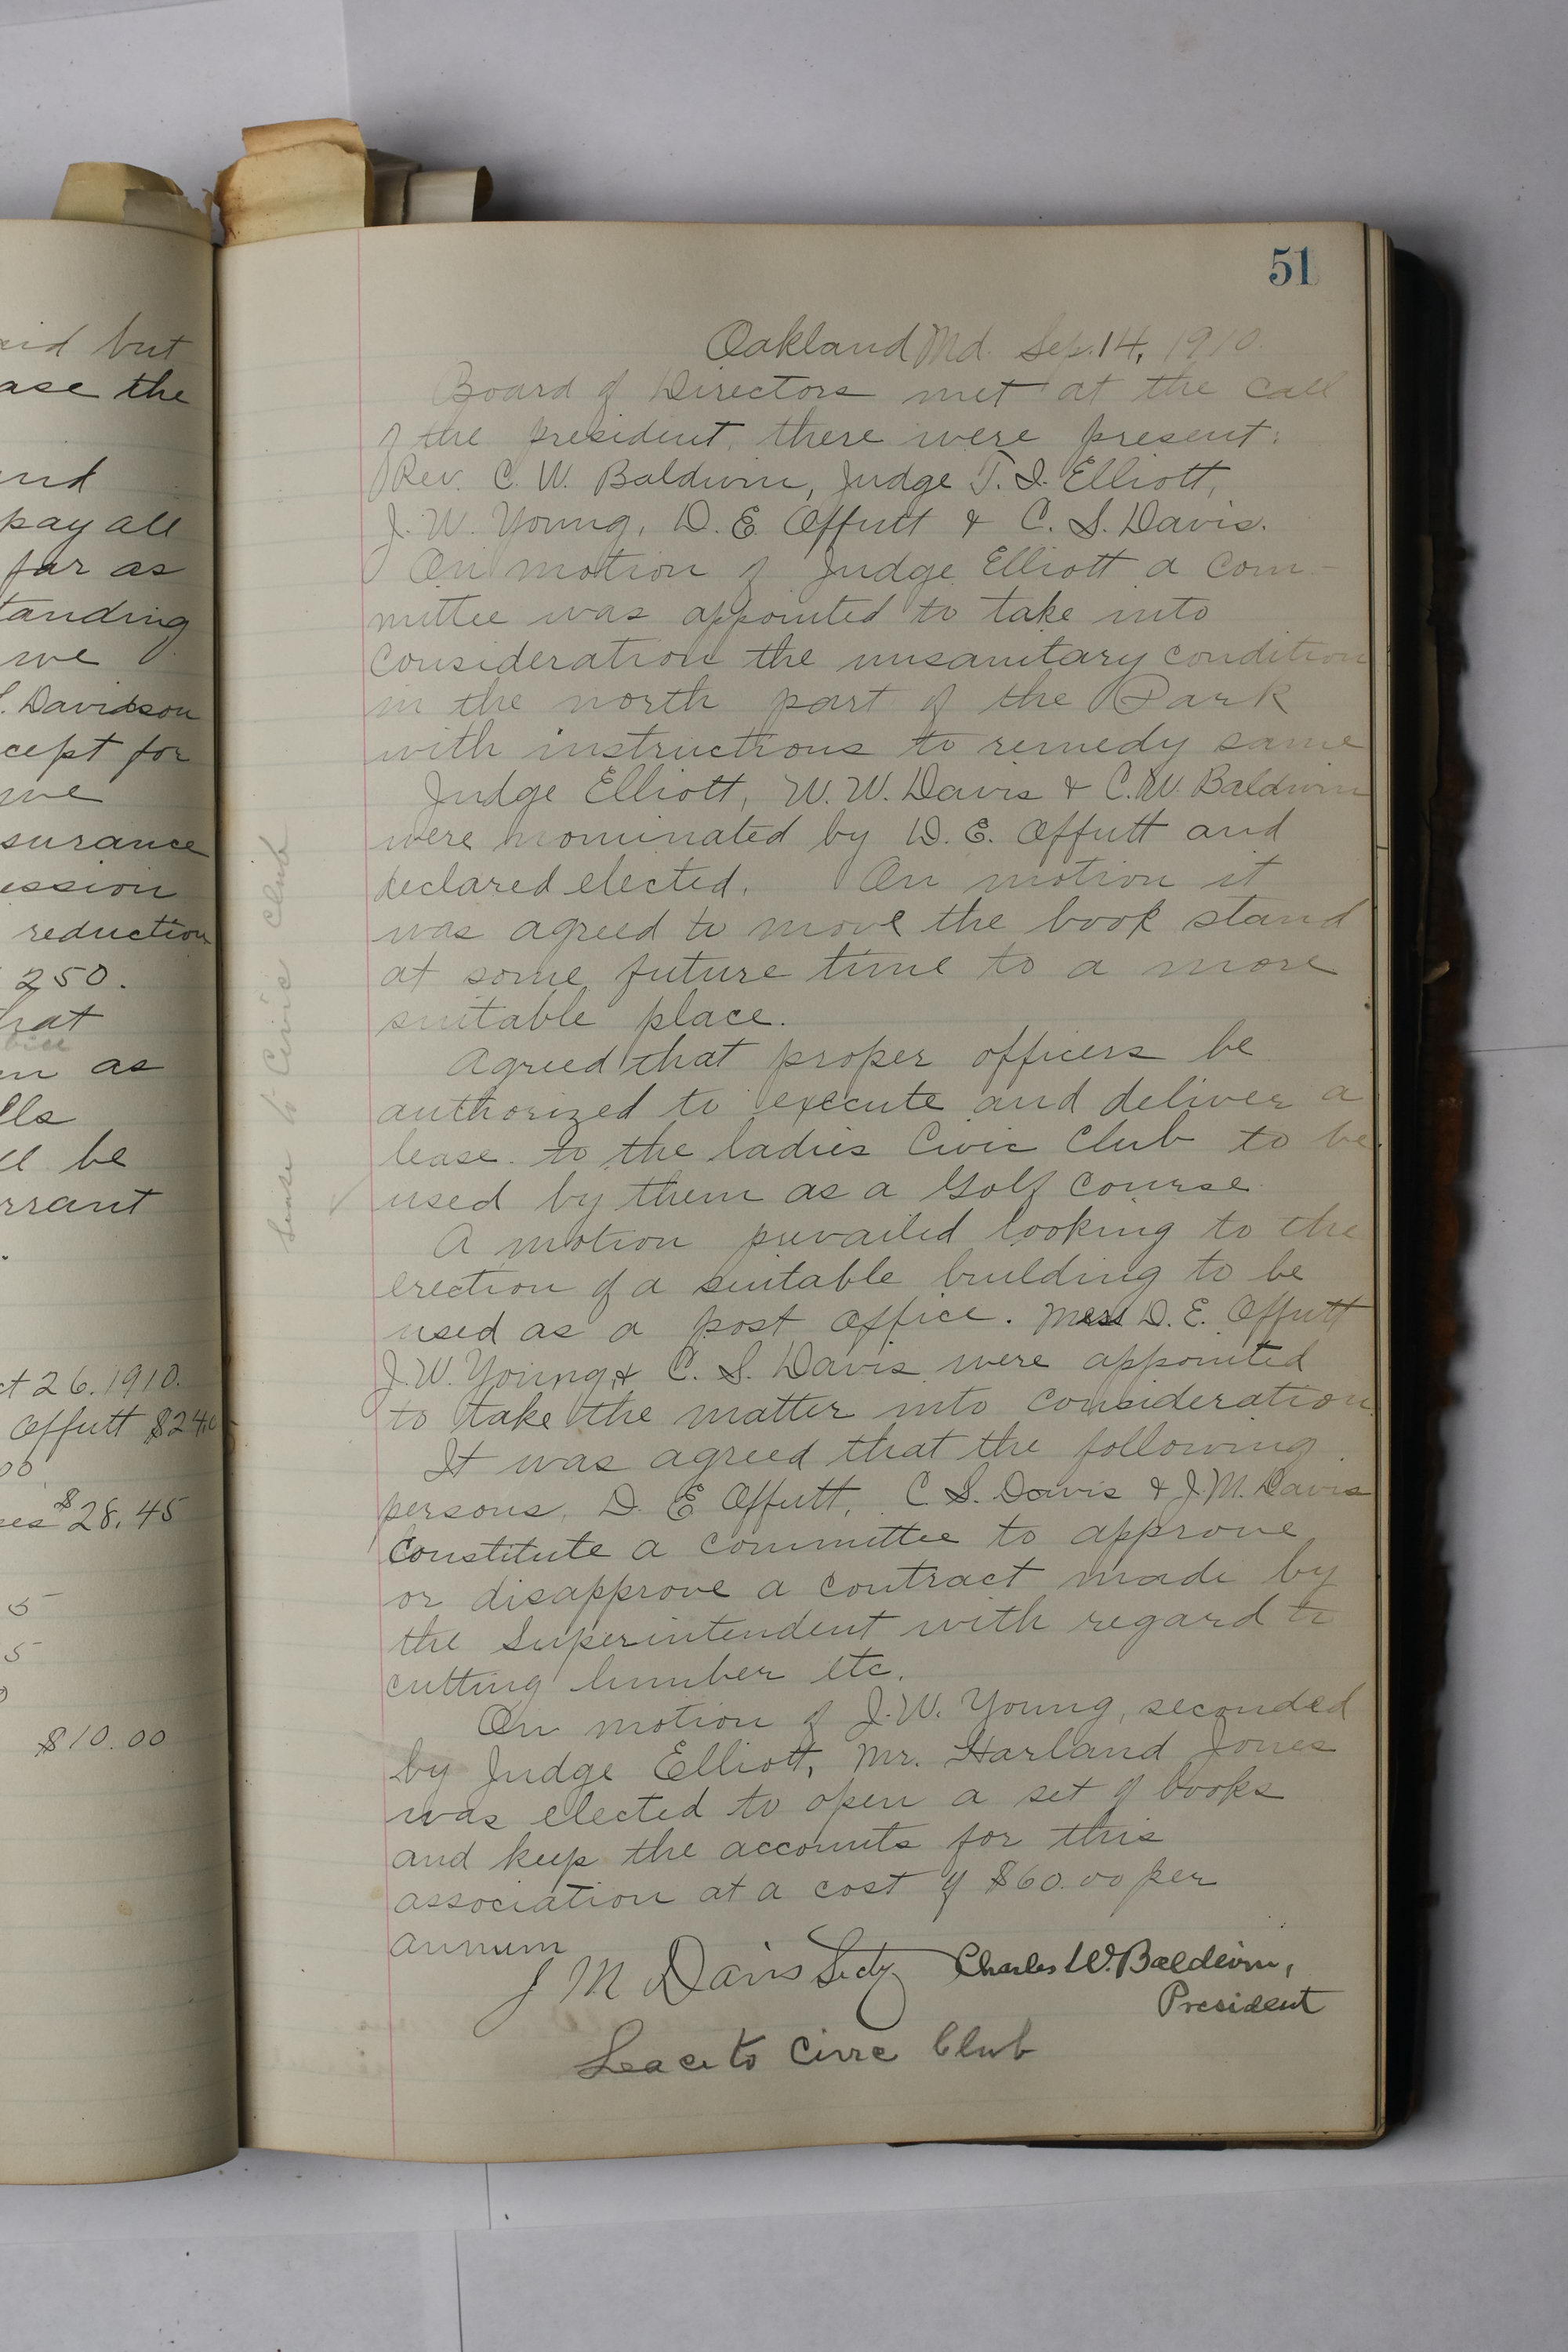 aid but
ase the
and
pay all
far as
tanding
we
S. Davidson
cept for
we
surance
ession
reduction
250.
that
en as
lls
ll be
rrant
ct 26. 1910.
Offutt $24.0
00
ses $28.45
5
5
$10.00
51
Oakland Md. Sep. 14, 1910.
Board of Directors met at the call
of the president, there were present:
Rev. C. W. Baldwin, Judge T. I. Elliott,
J. W. Young, D. E. Offutt & C. S. Davis.
On motion of Judge Elliott a com-
mittee was appointed to take into
consideration the unsanitary condition
in the north part of the Park
with instructions to remedy same
Judge Elliott, W. W. Davis & C. W. Baldwin
were nominated by D. E. Offutt and
declared elected. On motion it
was agreed to move the book stand
at some future time to a more
suitable place.
Agreed that proper officers be
authorized to execute and deliver a
lease to the ladies Civic Club to be
used by them as a Golf course
A motion prevailed looking to the
erection of a suitable building to be
used as a post office. Mess D. E. Offutt
J. W. Young & C. S. Davis were appointed
to take the matter into consideration
It was agreed that the following
persons, D. E Offutt, C. S. Davis & J. M. Davis
constitute a committee to approve
or disapprove a contract made by
the Superintendent with regard to
cutting lumber etc.
On motion of J. W. Young, seconded
by Judge Elliott, Mr. Harland Jones
was elected to open a set of books
and keep the accounts for this
association at a cost of $60.00 per
annum
J M Davis Secty Charles W. Baldwin,
President
Leace to Civic Club
Lease to Civic Club